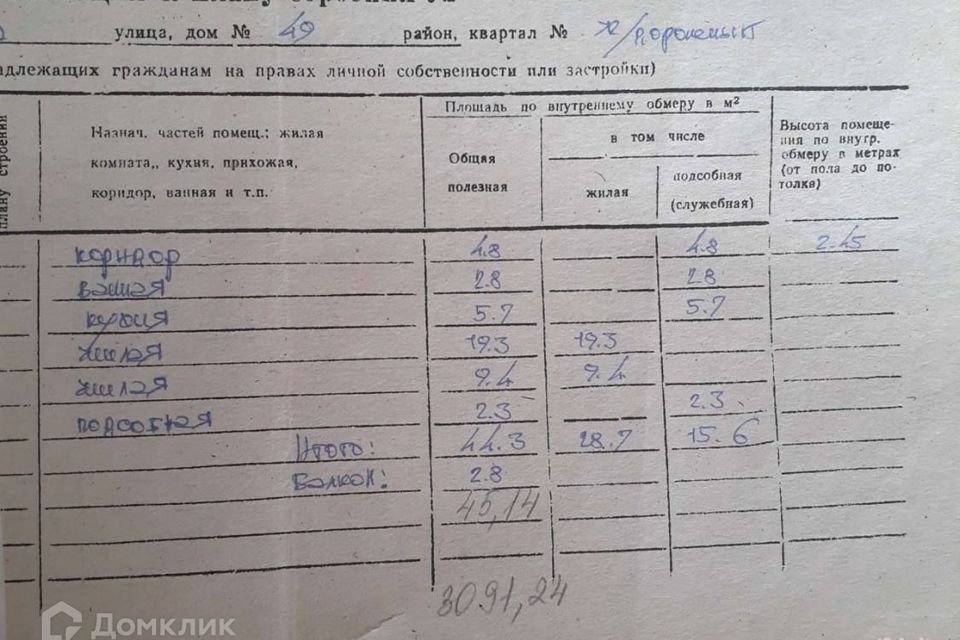 улица, дом № 49 район, квартал №
адлежащих гражданам на правах личной собственности или застройки)
плану строения
Назнач. частей помещ.: жилая
комната,, кухня, прихожая,
коридор, ванная и т.п.
Площадь по внутреннему обмеру в м²
Общая
полезная
в том числе
жилая
подсобная
(служебная)
Высота помеще-
ния по внутр.
обмеру в метрах
(от пола до по-
толка)
коридор 4.8 4.8 2.45
ванная 2.8 2.8
кухня 5.7 5.7
жилая 19.3 19.3
жилая 9.4 9.4
подсобная 2.3 2.3
Итого: 44.3 28.7 15.6
Балкон: 2.8
45,14
3091,24
Домклик